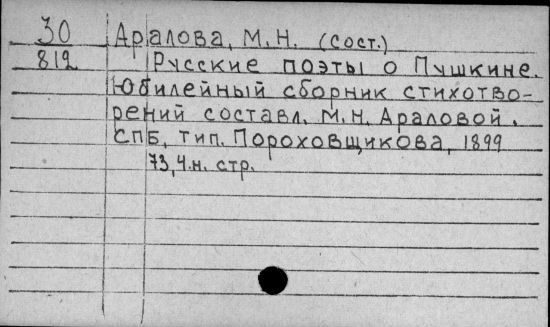 30 Аралова, М.Н. (сост.)
812 Русские поэты о Пушкине.
Юбилейный сборник стихотво-
рений составл. М.Н. Араловой.
СПБ, тип. Пороховщикова, 1899
73, 4.н. стр.